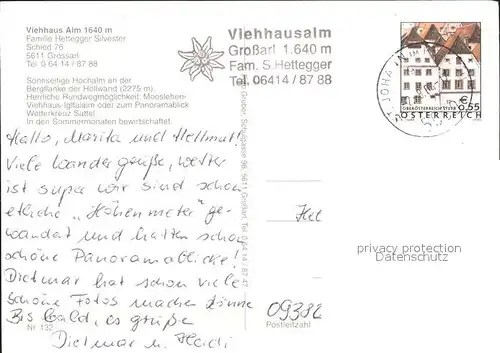 Viehhaus Alm 1640 m
Familie Hettegger Silvester
Schied 76
5611 Grossarl
Tel. 0 64 14 / 87 88
Sonnseitige Hochalm an der
Bergflanke der Höllwand (2275 m).
Herrliche Rundwegmöglichkeit: Mooslehen-
Viehhaus-Igltalalm oder zum Panoramablick
Wetterkreuz Sattel
In den Sommermonaten bewirtschaftet.
Viehhausalm
Großarl 1.640 m
Fam. S. Hettegger
Tel. 06414 / 87 88
ST. JOHA
€ 0,55
ÖSTERREICH
Hallo, Marita und Hellmut!
Viele Wandergrüße, Wetter
ist super wir sind schon
etliche „Höhenmeter" ge-
wandert und hatten schon
schöne Panoramablicke!
Dietmar hat schon viele
schöne Fotos machen können
Bis bald, es grüße
Dietmar u. Heidi
Nr. 132
Gruber, Schulgasse 98, 5611 Großarl, Tel. 0 64 14 / 87 47
privacy protection
Datenschutz
09382
Postleitzahl